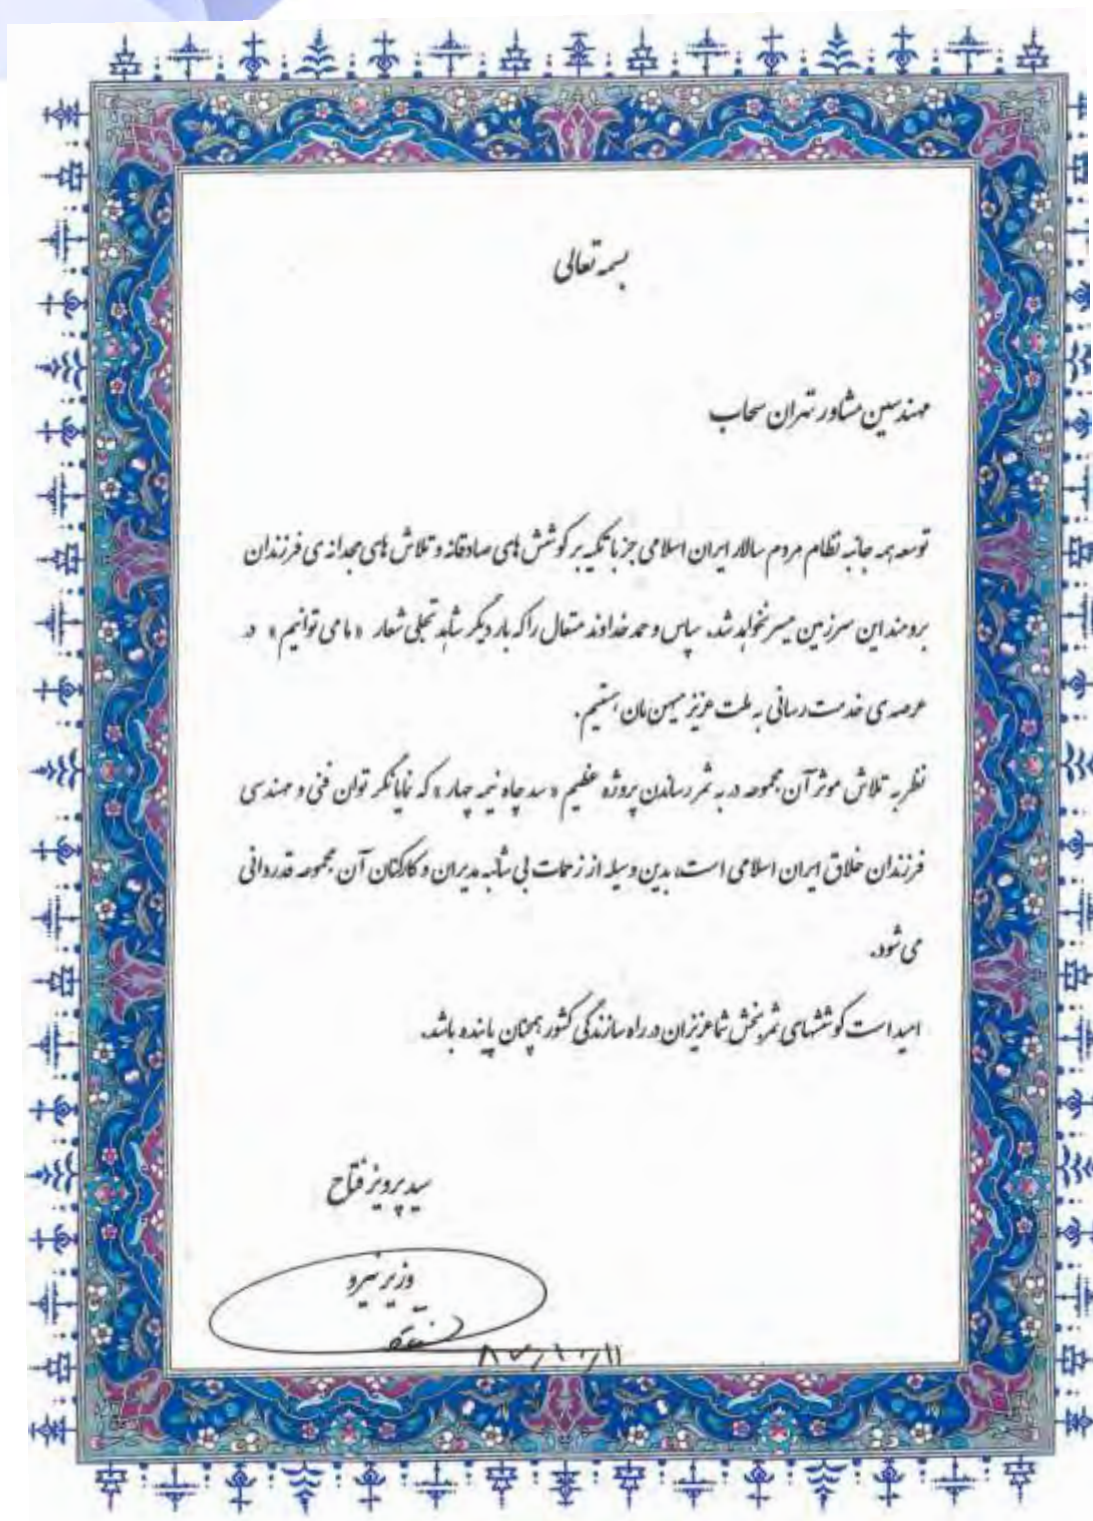 بسمه تعالی
مهندسین مشاور تهران سحاب
توسعه همه جانبه نظام مردم سالار ایران اسلامی جز با تکیه بر کوشش های صادقانه و تلاش های مجدانه ی فرزندان
برومند این سرزمین میسر نخواهد شد. سپاس و حمد خداوند متعال را که بار دیگر شاهد تجلی شعار «ما می توانیم» در
عرصه ی خدمت رسانی به ملت عزیز میهن مان هستیم.
نظر به تلاش موثر آن مجموعه در به ثمر رساندن پروژه عظیم «سد چاه نیمه چهار» که نمایانگر توان فنی و مهندسی
فرزندان خلاق ایران اسلامی است، بدین وسیله از زحمات بی شائبه مدیران و کارکنان آن مجموعه قدردانی
می شود.
امید است کوششهای ثمربخش شما عزیزان در راه سازندگی کشور همچنان پاینده باشد.
سید پرویز فتاح
وزیر نیرو
۸۷/۱۰/۱۱